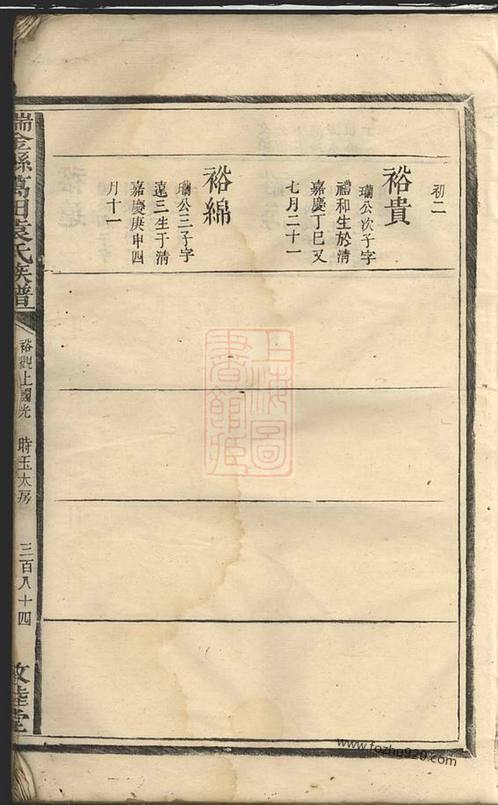 初二
裕貴
珊公次子字
禮和生於清
嘉慶丁巳又
七月二十一
裕綿
珊公三子字
遠三生于清
嘉慶庚申四
月十一
瑞金縣萬田袁氏族譜
裕觀上國光
時玉太房
三百八十四
敦睦堂
上海圖書館藏
www.fozhg920.com